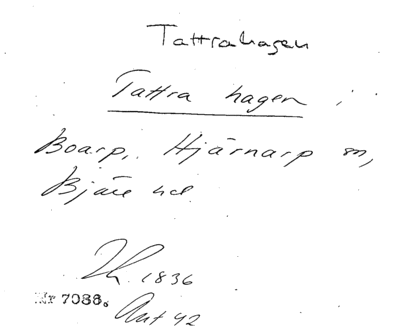 Tattrahagen
Tattra hagen i
Boarp, Hjärnarp sn,
Bjäre hd
1836
Nr 7086.
Ant 42